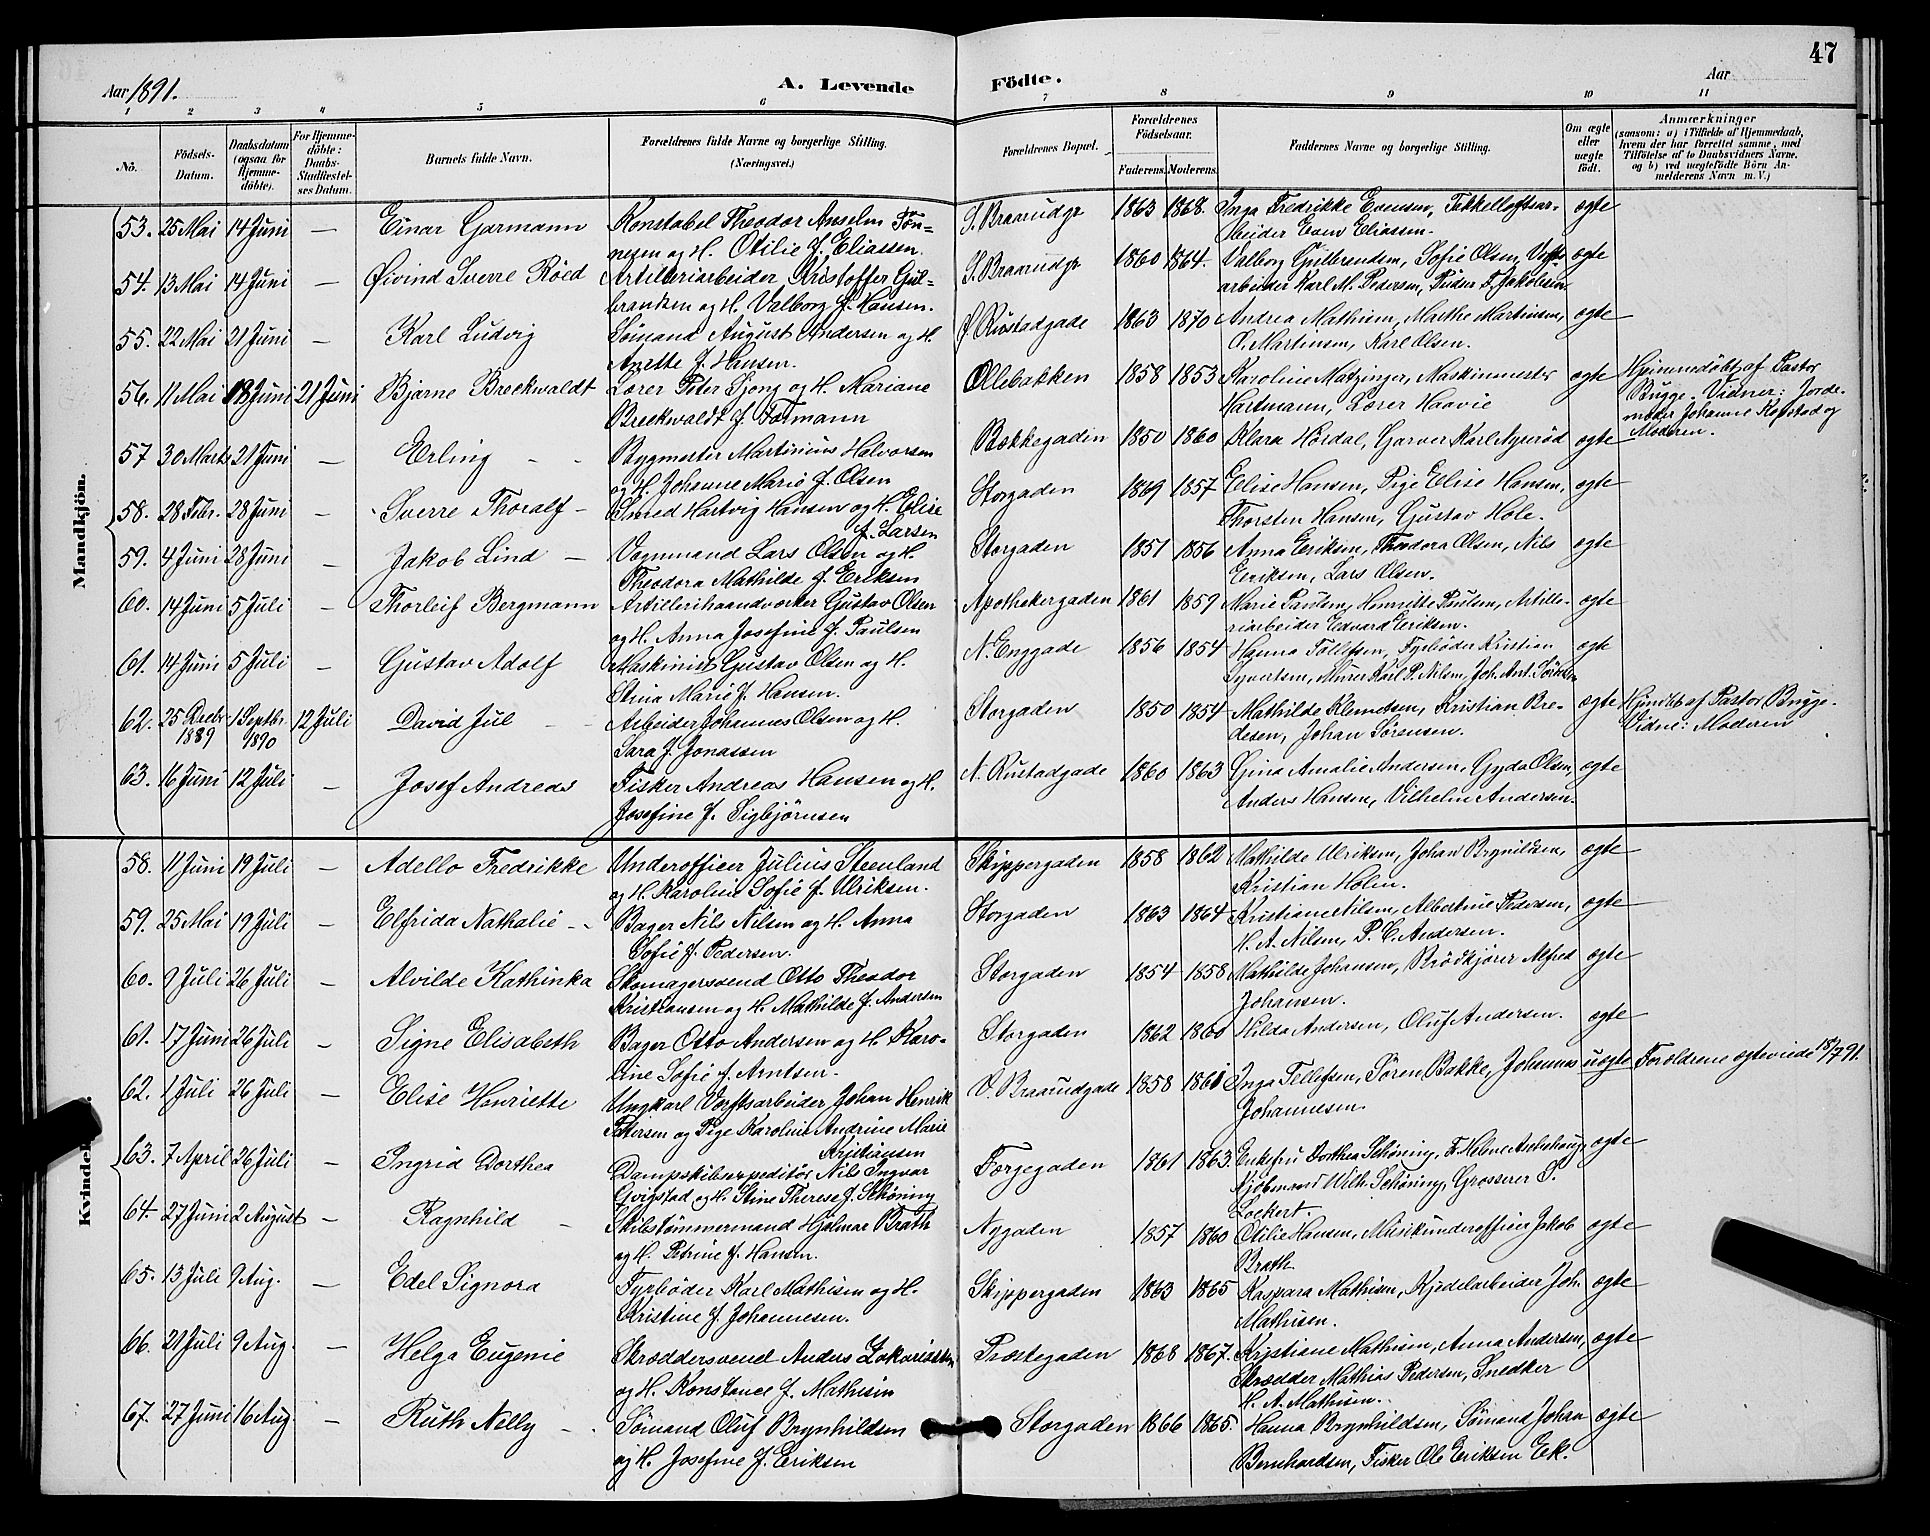 Aar 1891.
A. Levende
1 2 3 4 5 6
Nô.
Födsels-Datum.
Daabsdatum (ogsaa for Hjemme-döbte).
For Hjemme-döbte: Daabs-Stadfæstel-ses Datum.
Barnets fulde Navn.
Forældrenes fulde Navne og borgerlige Stilling.
(Næringsvei.)
Mandkjön.
53. 25 Mai 14 Juni — Einar Garmann Konstabel Theodor Anselm Tön=
nesen og H. Otilie f. Eliassen.
54. 13 Mai 14 Juni — Øivind Sverre Röed Artilleriarbeider Kristoffer Gul=
brandsen og H. Valborg f. Hansen.
55. 22 Mai 21 Juni — Karl Ludvig Sømand August Andersen og H.
Anette f. Hansen.
56. 11 Mai 13 Juni 21 Juni Bjarne Breckwaldt Lærer Peter Sjong og H. Mariane
Breckwaldt f. Totmann
57 30 Marts 21 Juni — Erling Bygmester Martinius Halvorsen
og H. Johanne Marie f. Olsen
58. 28 Febr. 28 Juni — Sverre Thoralf Smed Hartvig Hansen og H. Elise
f. Larsen
59. 4 Juni 28 Juni — Jakob Lind Vognmand Lars Olsen og H.
Theodora Mathilde f. Eriksen
60. 14 Juni 5 Juli — Thorleif Bergmann Artillerihaandværker Gustav Olsen
og H. Anna Josefine f. Paulsen
61. 14 Juni 5 Juli — Gustav Adolf Maskinist Gustav Olsen og H.
Stina Marie f. Hansen.
62. 25 Decbr 1889 1 Septbr. 1890 12 Juli David Jul Arbeider Johannes Olsen og H.
Sara f. Jonassen
63. 16 Juni 12 Juli — Josef Andreas Fisker Andreas Hansen og H.
Josefine f. Sigbjørnsen
58. 11 Juni 19 Juli — Adello Fredrikke Underofficer Julius Steenland
og H. Karoline Sofie f. Ulriksen.
59. 25 Mai 19 Juli Elfrida Nathalie Bager Nils Nilsen og H. Anna
Sofie f. Pedersen.
60. 9 Juli 26 Juli — Alvilde Kathinka Skomagersvend Otto Theodor
Kristiansen og H. Mathilde f. Andersen
61. 17 Juni 26 Juli — Signe Elisabeth Bager Otto Andersen og H. Karo-
line Sofie f. Arntsen.
62. 1 Juli 26 Juli — Elise Henriette Ungkarl Verftsarbeider Johan Henrik
Pettersen og Pige Karoline Andrine Marie
Kristiansen
63. 7 April 26 Juli — Ingrid Dorthea Dampskibsexpeditör Nils Ingvar
Qvigstad og H. Stine Therese f. Schöning
64. 27 Juni 2 August — Ragnhild Skibstømmermand Hjalmar Brath
og H. Petrine f. Hansen.
65. 13 Juli 9 Aug. — Edel Signora Fyrbøder Karl Mathisen og H.
Kristine f. Johannesen.
66. 21 Juli 9 Aug. — Helga Eugenie Skræddersvend Anders Zakariassen
og H. Konstance f. Mathisen
67. 27 Juni 16 Aug. — Ruth Nelly Sømand Oluf Brynhildsen
og H. Josefine f. Eriksen
Födte.
47
Aar
7 8 9 10 11
Forældrenes Bopæl.
Forældrenes Födselsaar.
Faderens. Moderens.
Faddernes Navne og borgerlige Stilling.
Om ægte eller uægte födt.
Anmærkninger
(saasom: a) i Tilfælde af Hjemmedaab,
hvem der har forrettet samme, med
Tilföielse af to Daabsvidners Navne,
og b) ved uægtefödte Börn An-
melderens Navn m. V.)
S. Braarudgt 1863 1868. Inga Fredrikke Evensen, Takkelloftsar- ægte
beider Even Eliassen.
S. Braarudgt 1860 1864. Valborg Gulbrandsen, Sofie Olsen, Verfts- ægte
arbeider Karl M. Pedersen, Peder F. Jakobsen
Ø Rustadgade 1863 1870 Andrea Mathisen, Marthe Martinsen, ægte
O. Martinsen, Karl Olsen.
Ollebakken 1858 1853 Karoline Matzinger, Maskinmester ægte Hjemmedöbt af Pastor
Hartmann, Lærer Haavie Bugge. Vidner: Jorde-
moder Johanne Kopstad og
Moderen.
Bakkegaden 1850 1860 Klara Hördal, Garver Karl Nyerød ægte
Storgaden 1869 1857 Elise Hansen, Pige Elise Hansen, ægte
Thorsten Hansen, Gustav Hole.
Storgaden 1851 1856 Anna Eriksen, Theodora Olsen, Nils ægte
Eriksen, Lars Olsen.
Apothekergaden 1861 1859 Marie Paulsen, Henriette Paulsen, Artille- ægte
riarbeider Edvard Eriksen.
N. Enggade 1856 1854 Hanna Tollefsen, Fyrbøder Kristian ægte
Syvertsen, Murer Karl P. Nilsen, Joh. Ant. Sörensen
Storgaden 1850 1854 Mathilde Klemetsen, Kristian Bre- ægte Hjmdöbt af Pastor Bugge.
desen, Johan Sørensen. Vidne: Moderen
N. Rustadgade 1860 1863 Gina Amalie Andersen, Gyda Olsen, ægte
Anders Hansen, Vilhelm Andersen.
Skippergaden 1858 1862 Mathilde Ulriksen, Johan Brynildsen, ægte
Kristian Holm.
Storgaden 1863 1864 Kristiane Nilsen, Albertine Pedersen, ægte
H. A. Nilsen, P. C. Andersen.
Storgaden 1854 1858 Mathilde Johansen, Brödkjörer Alfred ægte
Johansen.
Storgaden 1862 1860 Hilda Andersen, Oluf Andersen. ægte
V. Braarudgade 1858 1861 Inga Tellefsen, Sören Bakke, Johannes uægte Forældrene ægteviede 18/7 91.
Johannesen.
Færgegaden 1861 1863. Enkefru Dorthea Schöning, Fr. Helene Aubehaug, ægte
Kjöbmand Wilh. Schöning, Grosserer S.
Lockert.
Nygaden 1857 1860 Otilie Hansen, Musikunderofficer Jakob ægte
Brath
Skippergaden 1863 1865 Kaspara Mathisen, Kjedelarbeider Joh. ægte
Mathisen.
Præstegaden 1868 1867. Kristiane Mathisen, Anna Andersen, ægte
Skrædder Mathias Pedersen, Snedker
H. A. Mathisen.
Storgaden 1866 1865. Hanna Brynhildsen, Sømand Johan ægte
Bernhardsen, Fisker Ole Eriksen Ek.